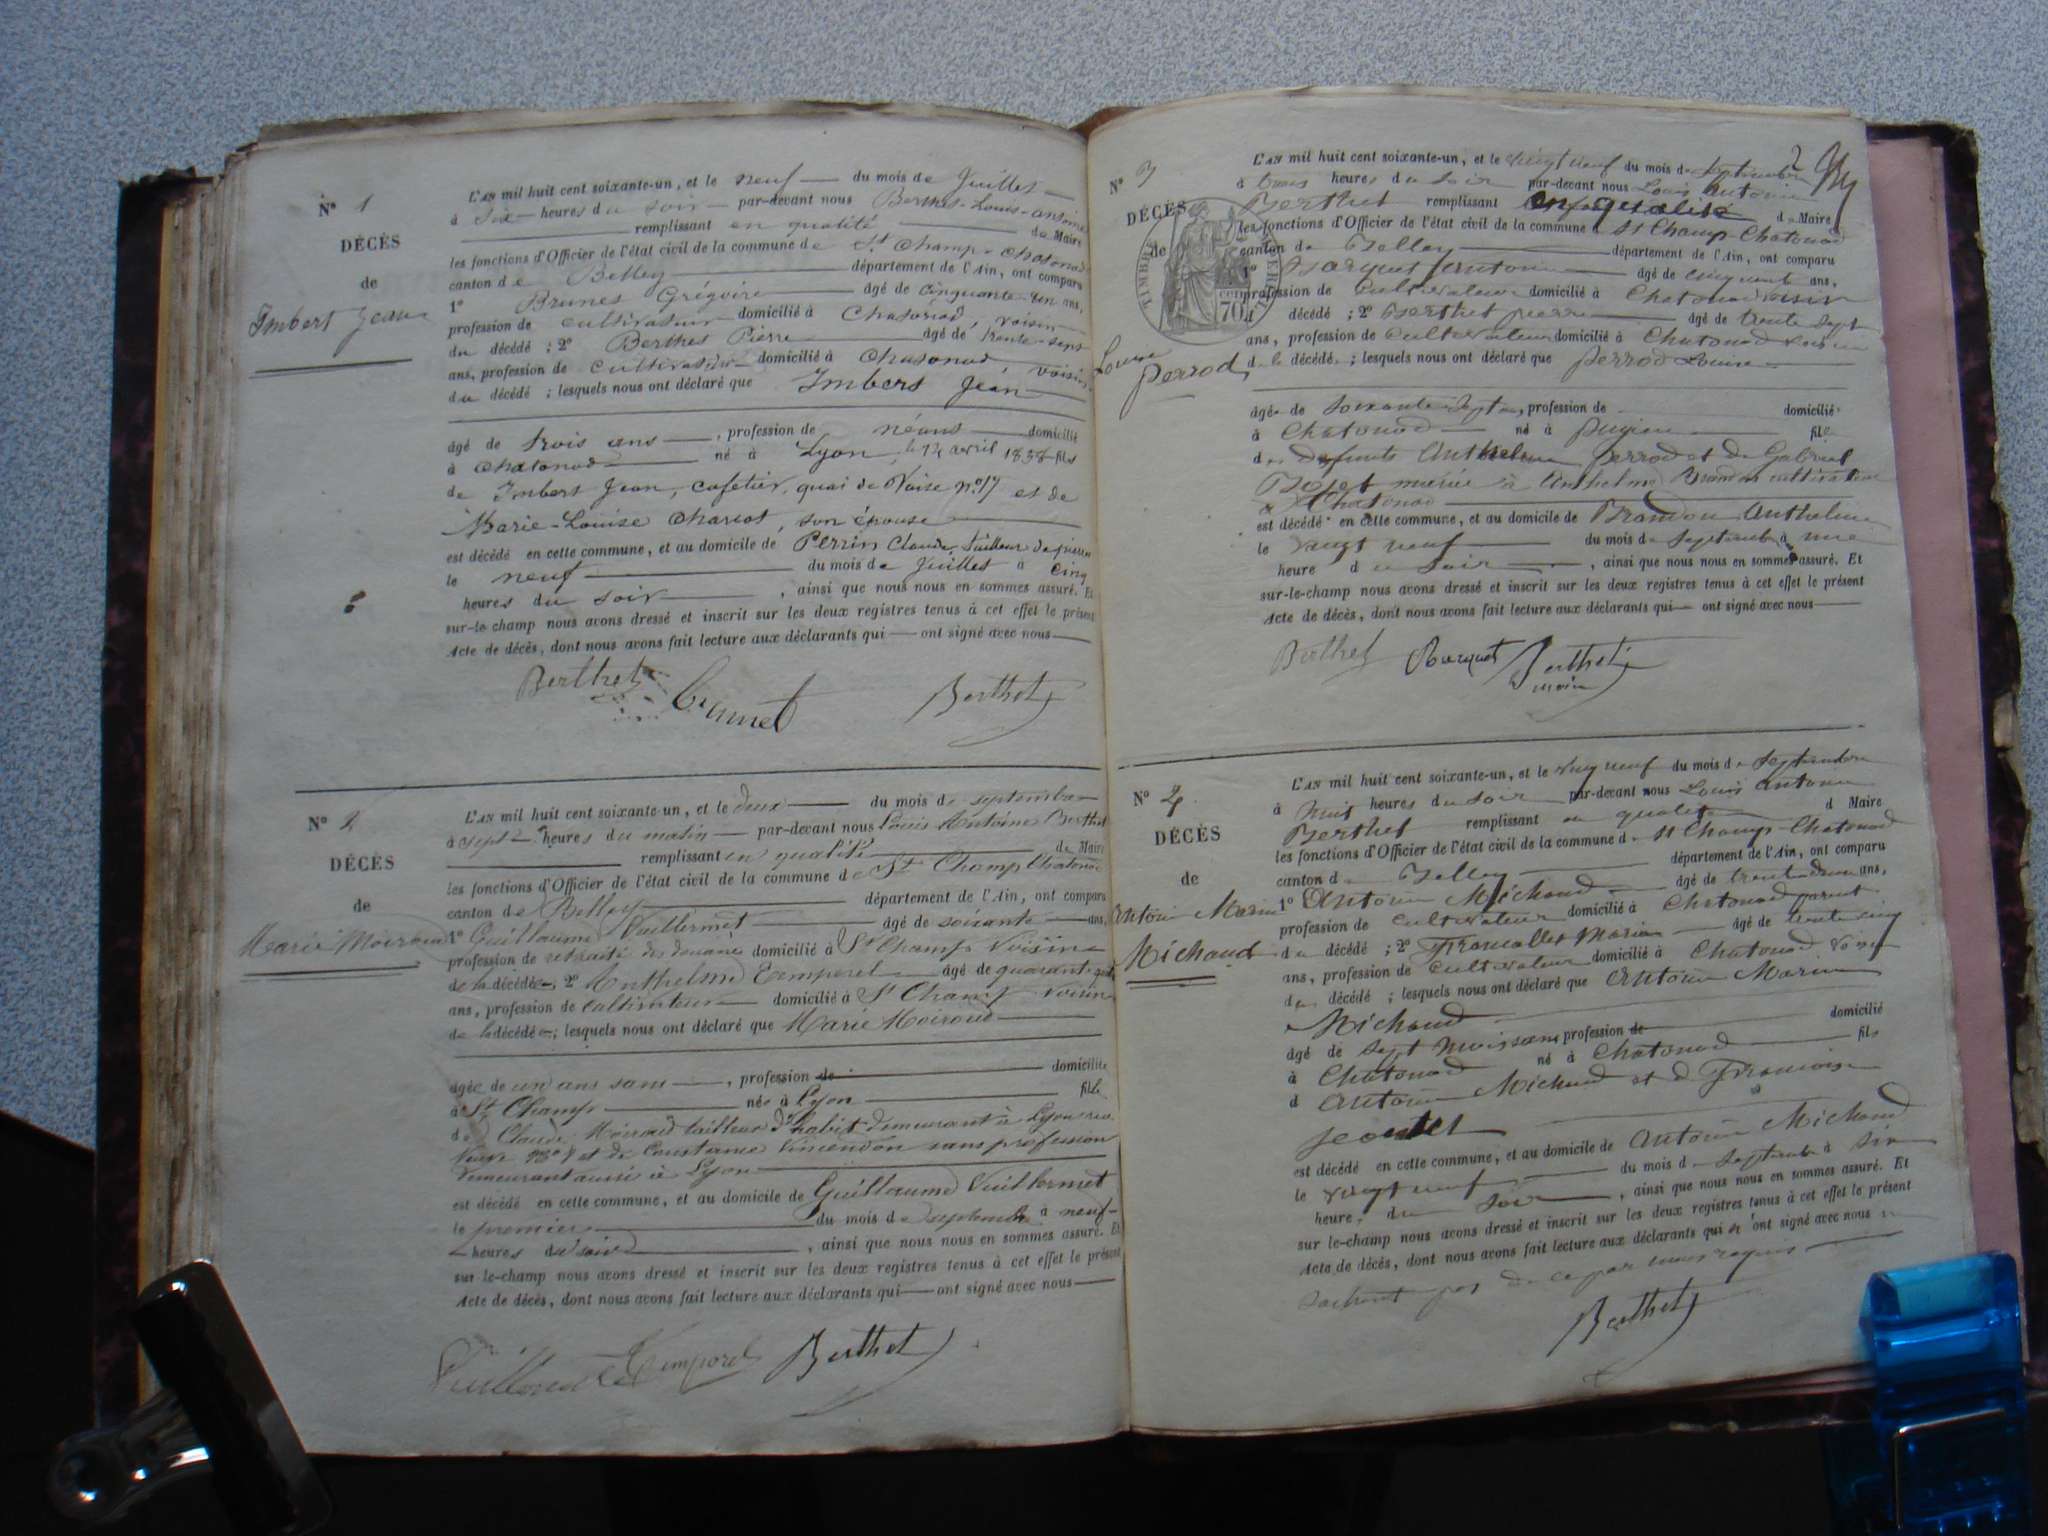 N° 1
DÉCÈS
de
Imbert Jean
L'AN mil huit cent soixante-un, et le neuf du mois de Juillet
à six heures du soir par-devant nous Berthet Louis-antoine
remplissant en qualité de Maire
les fonctions d'Officier de l'état civil de la commune de St Champ-Chatonod
canton de Belley département de l'Ain, ont comparu
1° Brunet Grégoire âgé de cinquante-un ans,
profession de cultivateur domicilié à Chatonod, voisin
du décédé ; 2° Berthet Pierre âgé de trente-sept
ans, profession de cultivateur domicilié à Chatonod voisin
du décédé ; lesquels nous ont déclaré que Imbert Jean
âgé de trois ans, profession de néant domicilié
à Chatonod né à Lyon, le avril 1858 fils
de Imbert Jean, cafetier, quai de Vaise n° 17 et de
Marie-Louise Charvot, son épouse
est décédé en cette commune, et au domicile de Perrin Claude, tailleur de pierres
le neuf du mois de Juillet à cinq
heures du soir, ainsi que nous nous en sommes assuré. Et
sur-le-champ nous avons dressé et inscrit sur les deux registres tenus à cet effet le présent
Acte de décès, dont nous avons fait lecture aux déclarants qui ont signé avec nous
Berthet Brunet Berthet
N° 2
DÉCÈS
de
Marie Moiroud
L'AN mil huit cent soixante-un, et le deux du mois de septembre
à sept heures du matin par-devant nous Louis Antoine Berthet
remplissant en qualité de Maire
les fonctions d'Officier de l'état civil de la commune de St Champ Chatonod
canton de Belley département de l'Ain, ont comparu
1° Guillaume Vuillermet âgé de soixante ans,
profession de retraité des douane domicilié à St Champ Voisin
de la décédée ; 2° Anthelme Temporel âgé de quarante
ans, profession de cultivateur domicilié à St Champ voisin
de la décédée ; lesquels nous ont déclaré que Marie Moiroud
âgée de un ans, profession de domiciliée
à St Champ née à Lyon fille
de Claude Moiroud tailleur d'habit demeurant à Lyon rue
et de Constance Vincendon sans profession
demeurant aussi à Lyon
est décédé en cette commune, et au domicile de Guillaume Vuillermet
le premier du mois de septembre à neuf
heures du soir, ainsi que nous nous en sommes assuré. Et
sur le-champ nous avons dressé et inscrit sur les deux registres tenus à cet effet le présent
Acte de décès, dont nous avons fait lecture aux déclarants qui ont signé avec nous
Vuillermet Temporel Berthet
2
N° 3
DÉCÈS
de
Louise
Perrod
TIMBRE IMPÉRIAL
70
L'AN mil huit cent soixante-un, et le vingt neuf du mois de septembre
à trois heures du soir par-devant nous Louis Antoine
Berthet remplissant en qualité de Maire
les fonctions d'Officier de l'état civil de la commune St Champ-Chatonod
canton de Belley département de l'Ain, ont comparu
1° Antoine âgé de cinquante ans,
profession de cultivateur domicilié à Chatonod voisin
décédé ; 2° Berthet pierre âgé de trente sept
ans, profession de cultivateur domicilié à Chatonod voisin
de la décédé ; lesquels nous ont déclaré que perrod Louise
âgée de soixante-sept, profession de domicilié
à Chatonod né à pugieu fille
des defunts Anthelme perrod et de
mariée à Anthelme Brandon cultivateur
à Chatonod
est décédé en cette commune, et au domicile de Brandon Anthelme
le vingt neuf du mois de septembre à une
heure du soir, ainsi que nous nous en sommes assuré. Et
sur-le-champ nous avons dressé et inscrit sur les deux registres tenus à cet effet le présent
Acte de décès, dont nous avons fait lecture aux déclarants qui ont signé avec nous
Berthet Berthet
N° 4
DÉCÈS
de
Antoine Marin
Michaud
L'AN mil huit cent soixante-un, et le vingt neuf du mois de septembre
à huit heures du soir par-devant nous Louis Antoine
Berthet remplissant en qualité d Maire
les fonctions d'Officier de l'état civil de la commune d St Champ-Chatonod
canton d Belley département de l'Ain, ont comparu
1° Antoine Michaud âgé de ans,
profession de cultivateur domicilié à Chatonod parent
du décédé ; 2° Marin âgé de trente cinq
ans, profession de cultivateur domicilié à Chatonod voisin
du décédé ; lesquels nous ont déclaré que Antoine Marin
Michaud
âgé de sept mois, profession de domicilié
à Chatonod né à Chatonod fils
d Antoine Michaud et d Françoise
est décédé en cette commune, et au domicile de Antoine Michaud
le vingt neuf du mois d septembre à six
heure du soir, ainsi que nous nous en sommes assuré. Et
sur le-champ nous avons dressé et inscrit sur les deux registres tenus à cet effet le présent
Acte de décès, dont nous avons fait lecture aux déclarants qui ont signé avec nous
sachant pas de ce par nous requis
Berthet